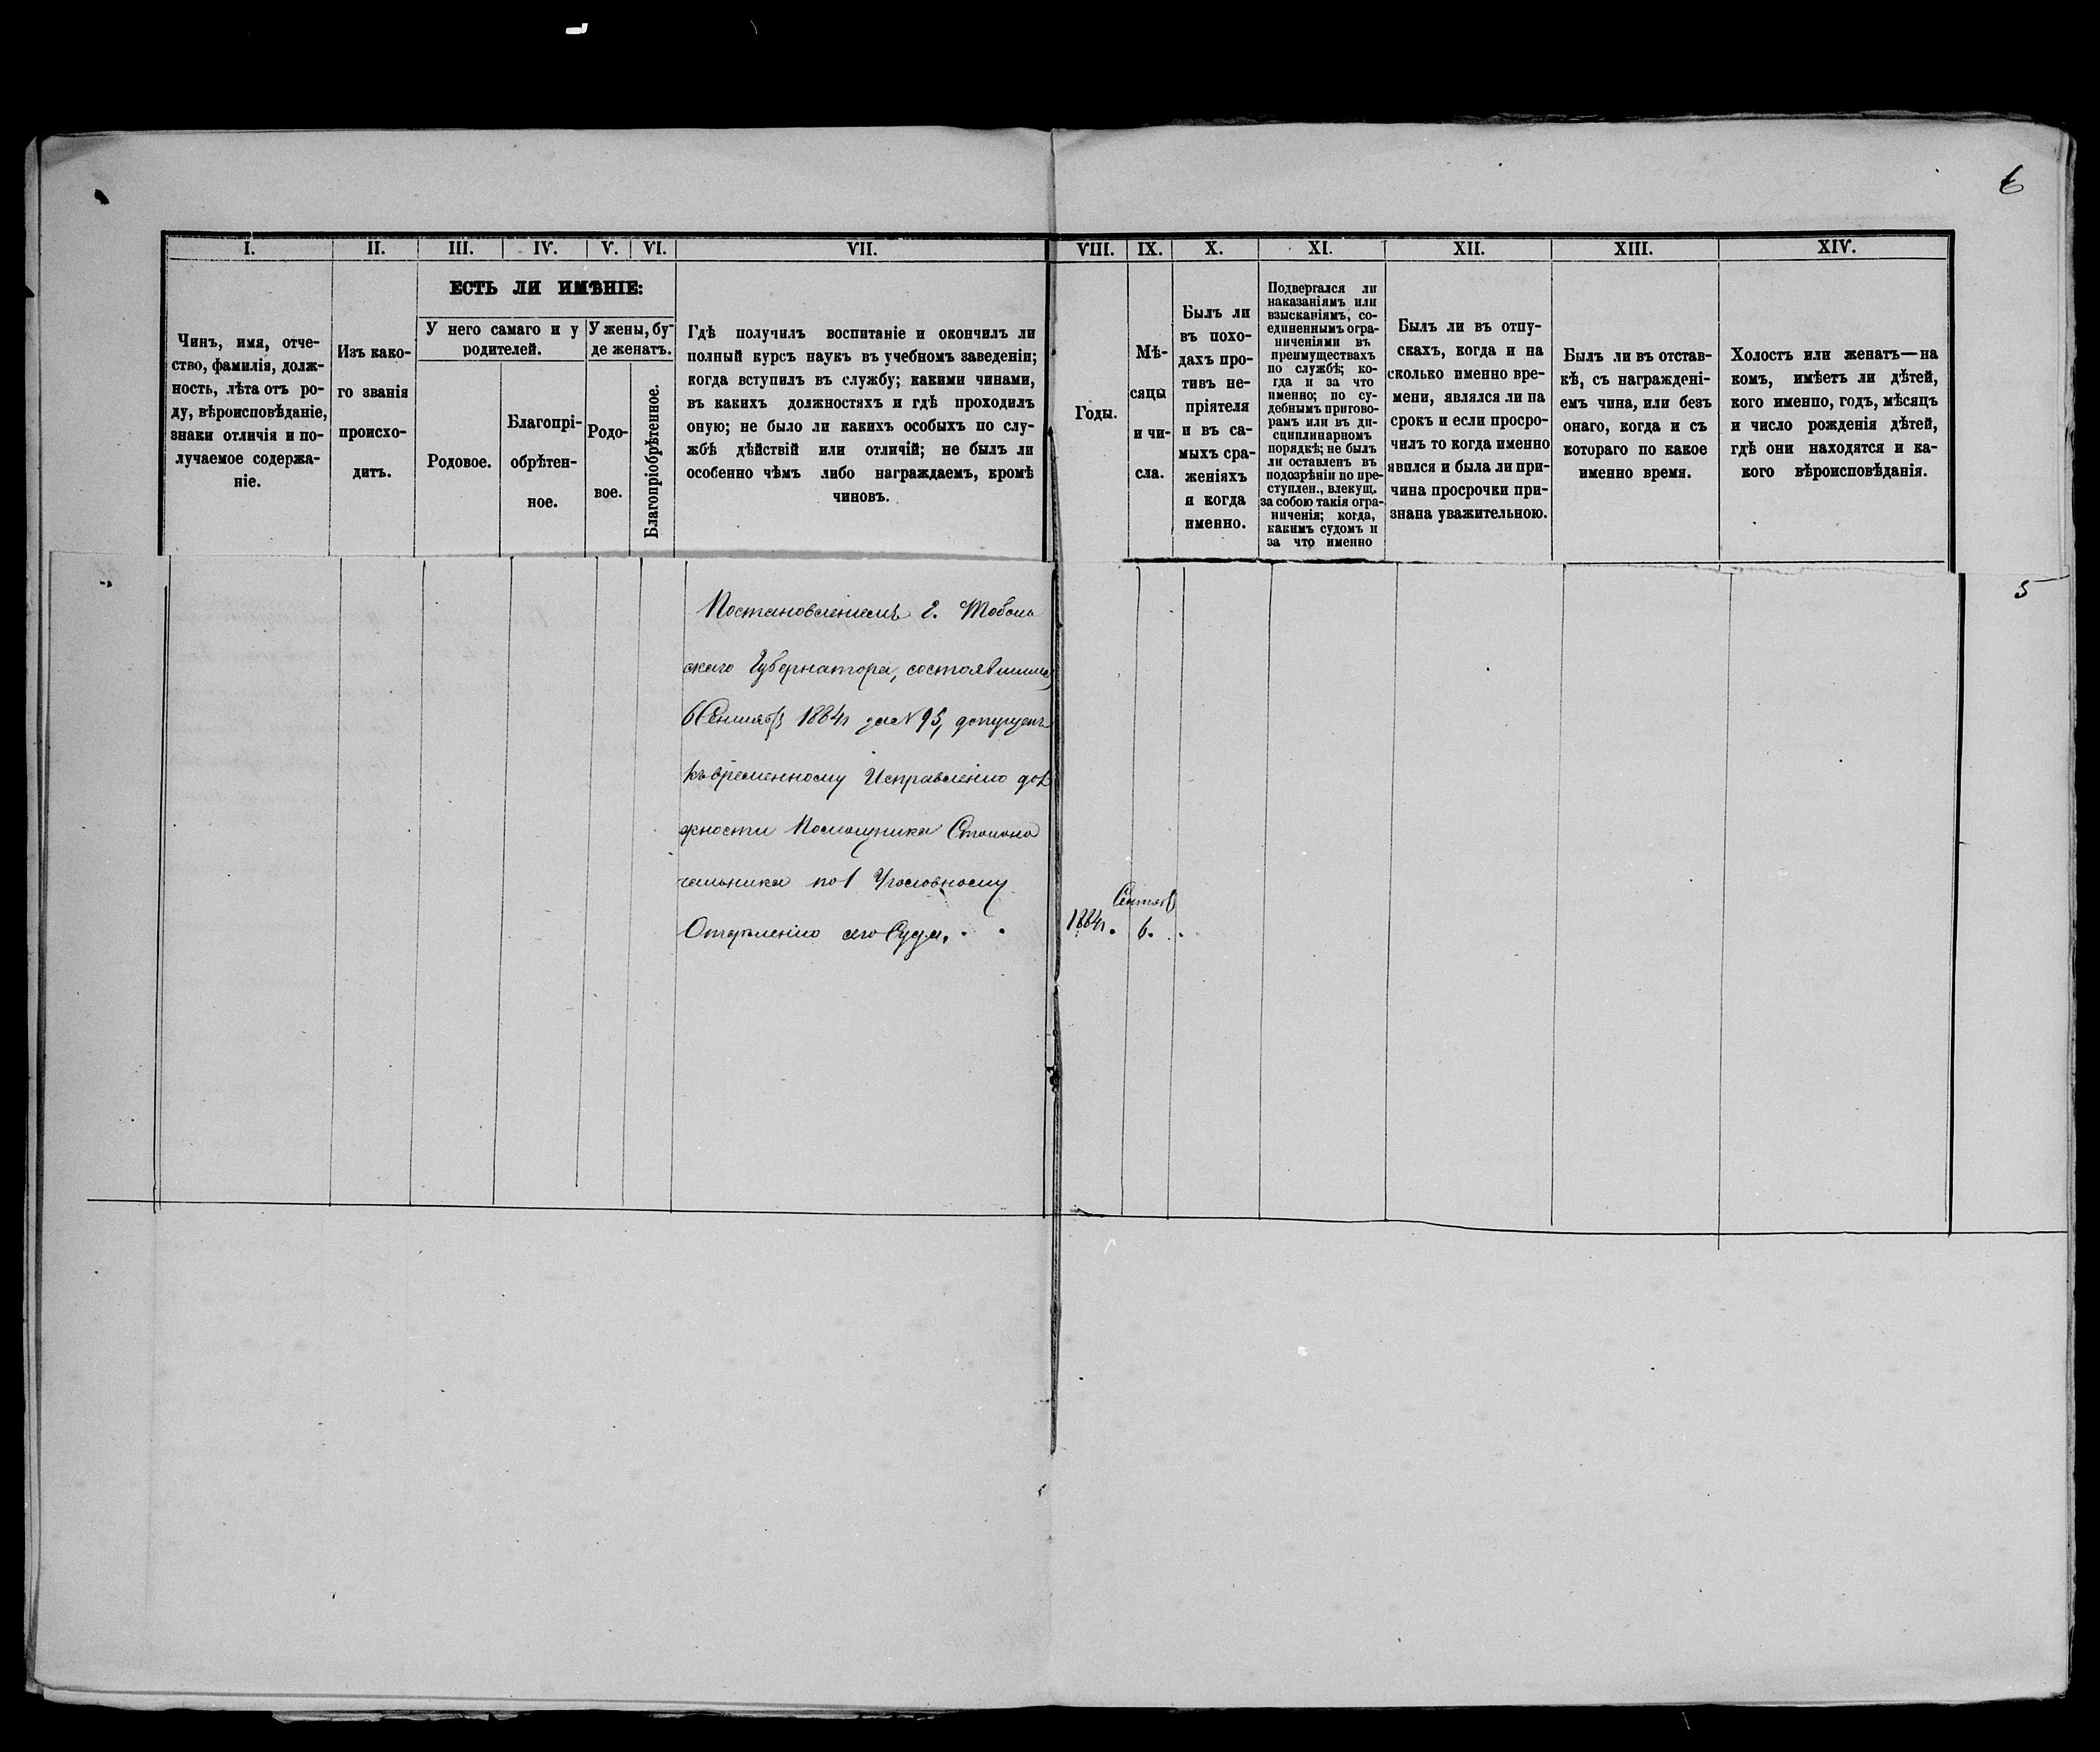 6
I. II. III. IV. V. VI. VII. VIII. IX. X. XI. XII. XIII. XIV.
Чинъ, имя, отче-
ство, фамилія, долж-
ность, лѣта отъ ро-
ду, вѣроисповѣданіе,
знаки отличія и по-
лучаемое содержа-
ніе.
Изъ како-
го званія
происхо-
дитъ.
ЕСТЬ ЛИ ИМѢНІЕ:
У него самаго и у
родителей.
Родовое.
Благопрі-
обрѣтен-
ное.
У жены, бу-
де женатъ.
Родо-
вое.
Благопріобрѣтенное.
Гдѣ получилъ воспитаніе и окончилъ ли
полный курсъ наукъ въ учебномъ заведеніи;
когда вступилъ въ службу; какими чинами,
въ какихъ должностяхъ и гдѣ проходилъ
оную; не было ли какихъ особыхъ по слу-
жбѣ дѣйствій или отличій; не былъ ли
особенно чѣмъ либо награждаемъ, кромѣ
чиновъ.
Годы.
Мѣ-
сяцы
и чи-
сла.
Былъ ли
въ похо-
дахъ про-
тивъ не-
пріятеля
и въ са-
мыхъ сра-
женіяхъ
и когда
именно.
Подвергался ли
наказаніямъ или
взысканіямъ, со-
единеннымъ огра-
ниченіями въ
преимуществахъ
по службѣ; ко-
гда и за что
именно; по су-
дебнымъ пригово-
рамъ или въ ди-
сциплинарномъ
порядкѣ; не былъ
ли оставленъ въ
подозрѣніи по пре-
ступлен., влекущ.
за собою такія огра-
ниченія; когда,
какимъ судомъ и
за что именно
Былъ ли въ отпу-
скахъ, когда и на
сколько именно вре-
мени, являлся ли на
срокъ и если просро-
чилъ то когда именно
явился и была ли при-
чина просрочки при-
знана уважительною.
Былъ ли въ отстав-
кѣ, съ награждені-
емъ чина, или безъ
онаго, когда и съ
котораго по какое
именно время.
Холостъ или женатъ—на
комъ, имѣетъ ли дѣтей,
кого именно, годъ, мѣсяцъ
и число рожденія дѣтей,
гдѣ они находятся и ка-
кого вѣроисповѣданія.
5
Постановленіемъ г. Тоболь
скаго Губернатора, состоявшимся
6 Сентяб 1884 г за N 95, допущенъ
къ временному Исправленію дол
жности Помощника Столона
чальника по 1 Уголовному
Отдѣленію сего Суда.
1884 г.
Сентяб
6.